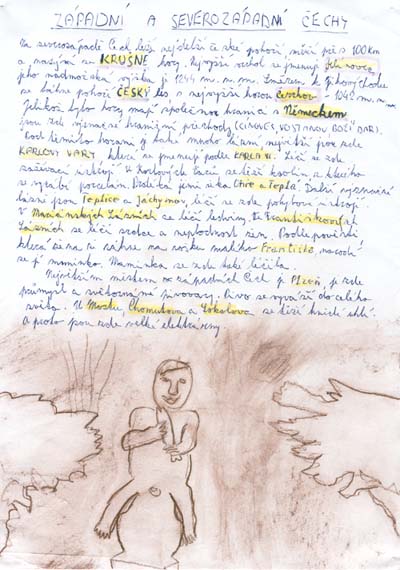 ZÁPADNÍ A SEVEROZÁPADNÍ ČECHY
Na severozápadě Čech leží nejdelší české pohoří měří přes 100 km
a nazývá se KRUŠNÉ hory. Nejvyšší vrchol se jmenuje Klínovec
jeho nadmořská výška je 1244 m. n. m. Směrem k jihovýchodu
se táhne pohoří ČESKÝ les s nejvyšší horou Čerchov - 1042 m. n. m.
Jelikož tyto hory mají společnou hranici s Německem
jsou zde významné hraniční přechody (CÍNOVEC, ROZVADOV, BOŽÍ DAR).
Pod těmito horami je také mnoho lázní, největší jsou zde
KARLOVY VARY které se jmenují podle KARLA IV. Léčí se zde
zažívací ústrojí. V Karlových Varech se těží kaolín, z kterého
se vyrábí porcelán. Protéká jimi řeka Ohře a Teplá. Další významné
lázně jsou Teplice a Jáchymov, léčí se zde pohybové ústrojí.
V Mariánských Lázních se léčí ledviny. Ve Františkových
Lázních se léčí srdce a neplodnost žen. Podle pověsti
která žena tu sáhne na sošku malého Františka, narodí
se jí miminko. Maminka se zde také léčila.
Největším městem v západních Čech je Plzeň, je zde
průmysl a světoznámé pivovary. Pivo se vyváží do celého
světa. U Mostu, Chomutova a Sokolova se těží hnědé uhlí.
A proto jsou zde velké elektrárny